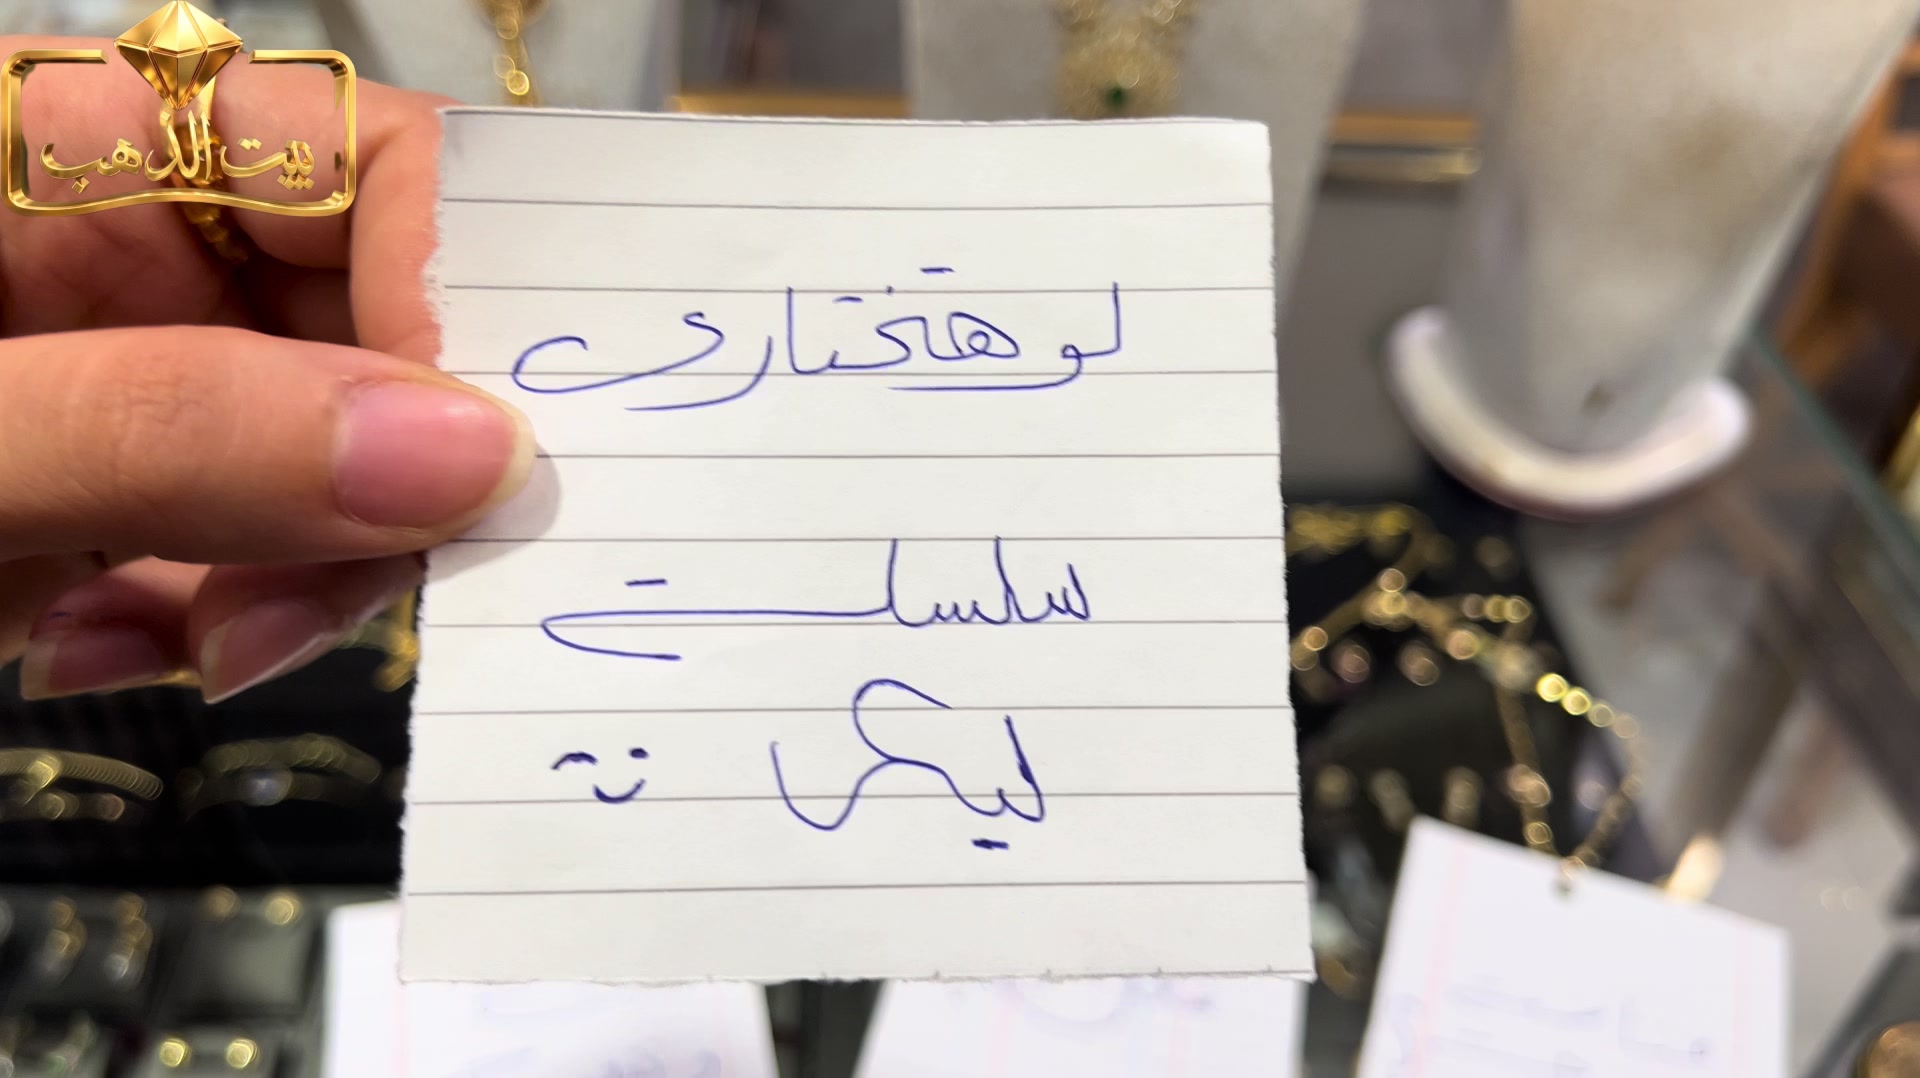 بيت الذهب
لو هتختارى
سلسلة
ليكى